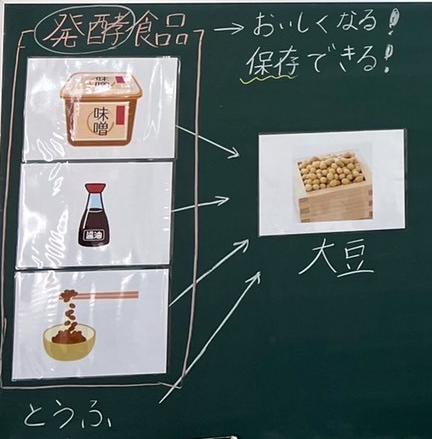 発酵食品
おいしくなる!
保存できる!
味噌
味噌
醤油
大豆
とうふ